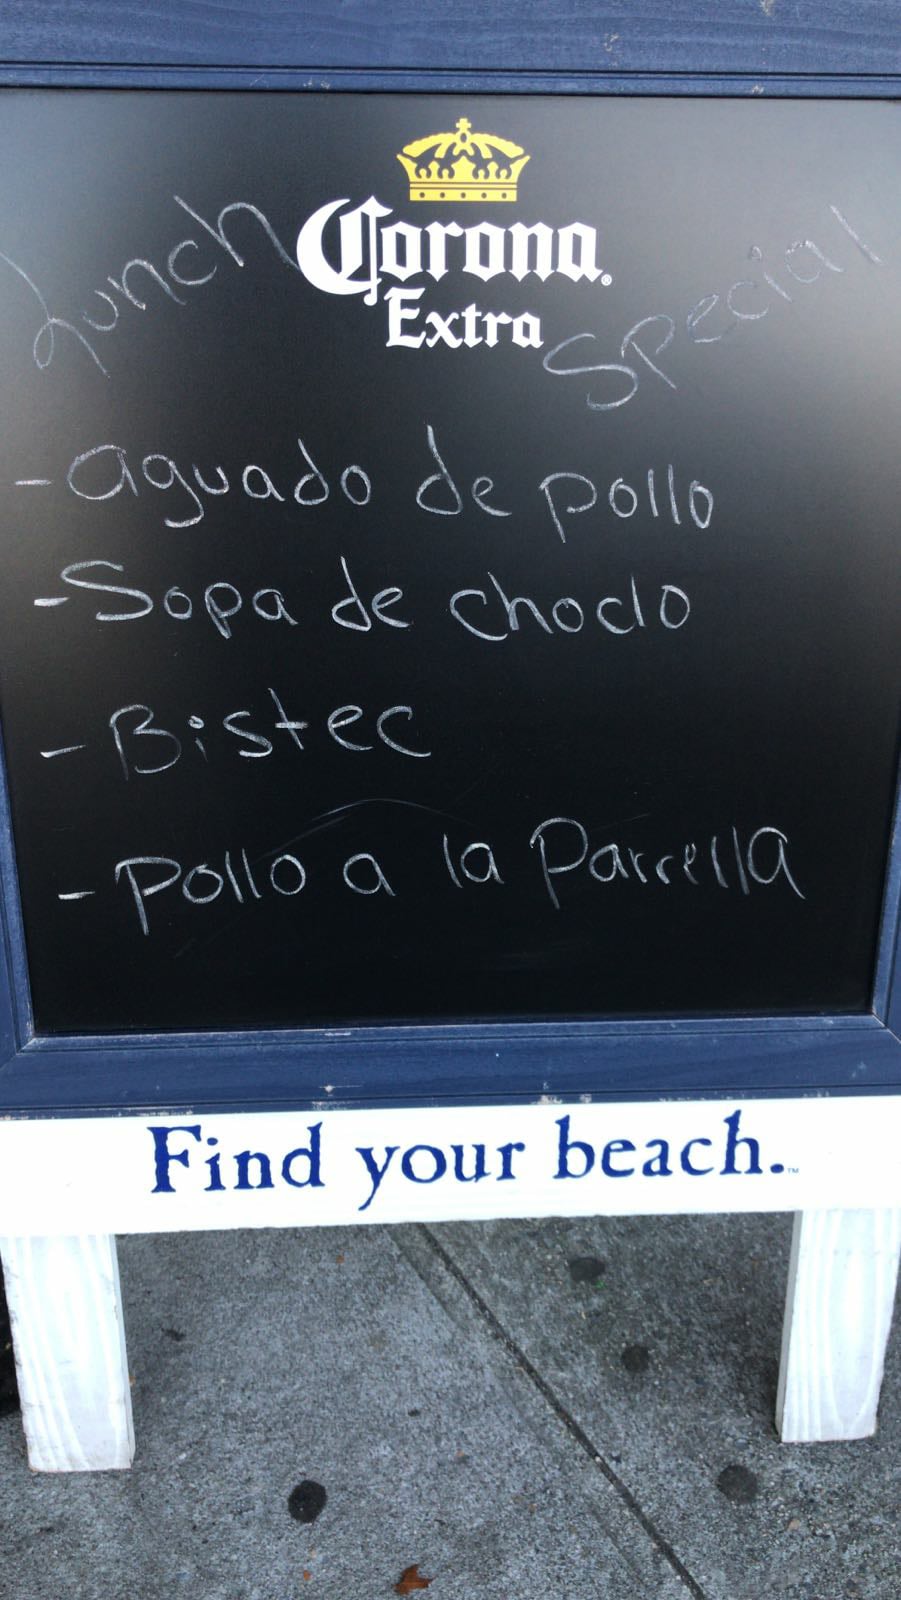 Corona®
Extra
Lunch Special
- aguado de pollo
- Sopa de choclo
- Bistec
- Pollo a la Parrella
Find your beach.™